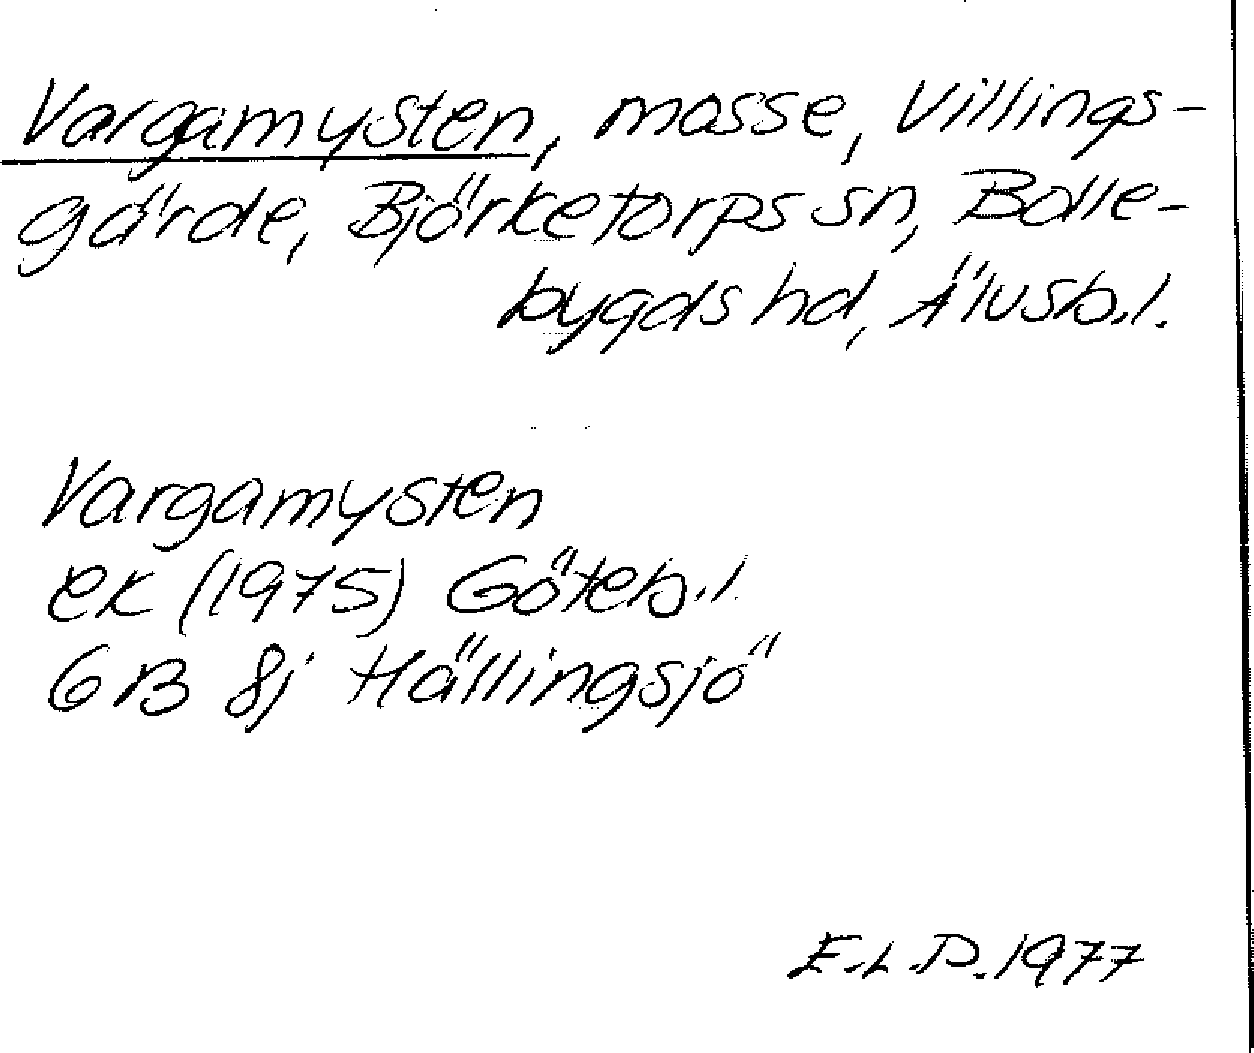 Vargamysten, mosse, Villings-
gärde, Björketorps sn, Bolle-
bygds hd, Älvsb.l.
Vargamysten
ek (1975) Göteb.l.
6B 8j Hällingsjö
E.L.P. 1977